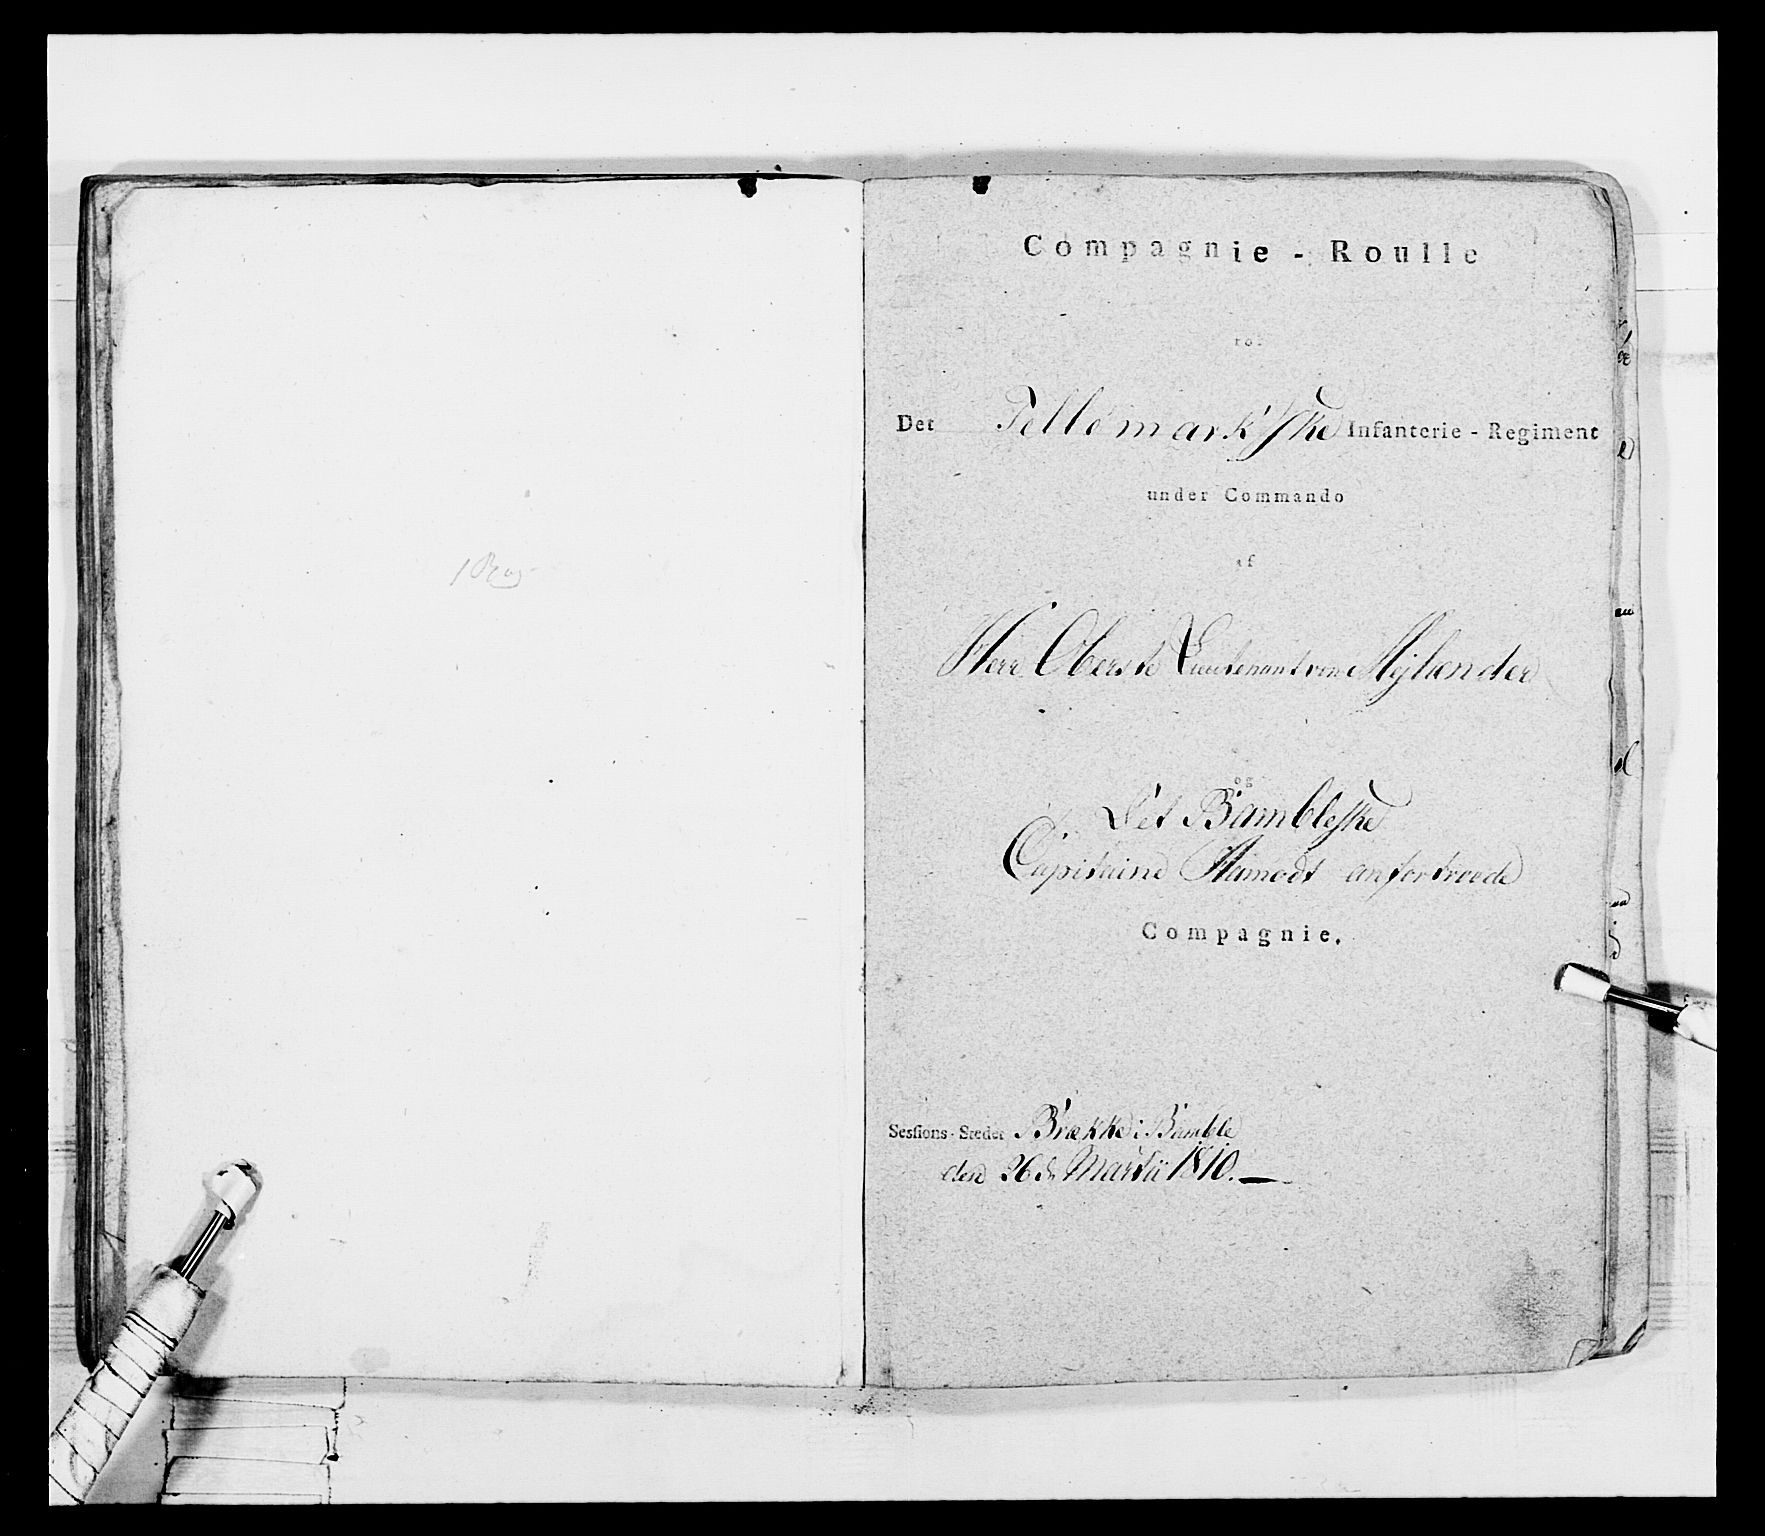 Compagnie - Roulle
for
Det Tellemarkske Infanterie - Regiment
under Commando
af
Herr Oberste Lieutenant von Mejlænder
og
Det Bambleske
Capitaine Hamodt anfortroede
Compagnie.
Sesfions - Stedet Brække i Bamble
den 26de Martii 1810.